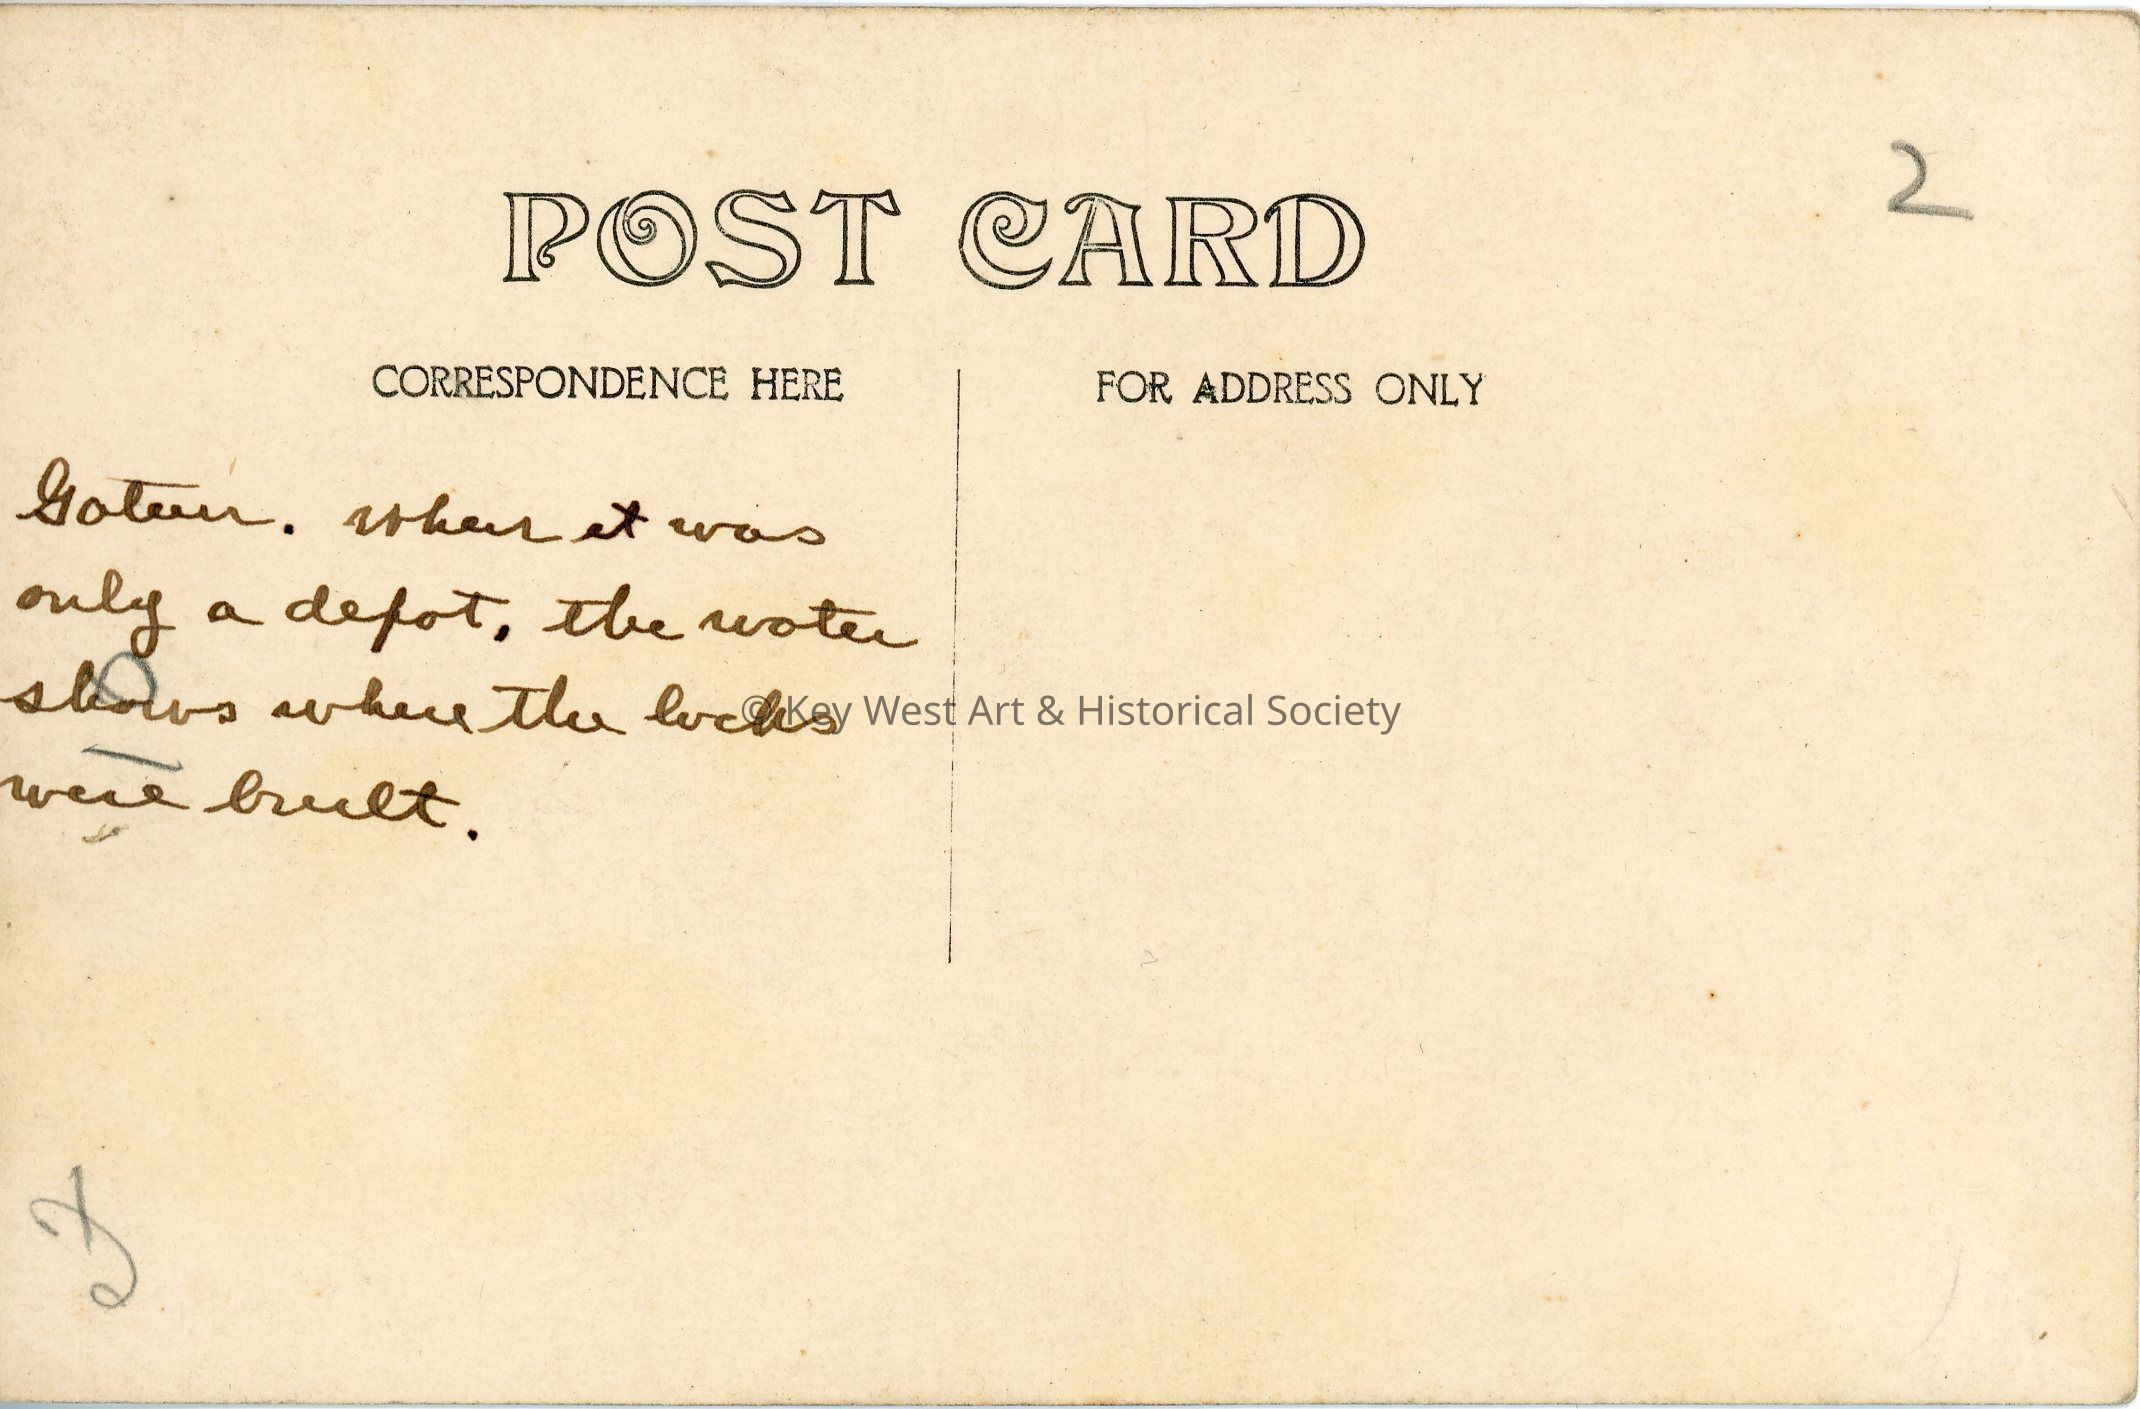 POST CARD
2
CORRESPONDENCE HERE
FOR ADDRESS ONLY
Gatun. when it was
only a depot, the water
shows where the locks
were built.
© Key West Art & Historical Society